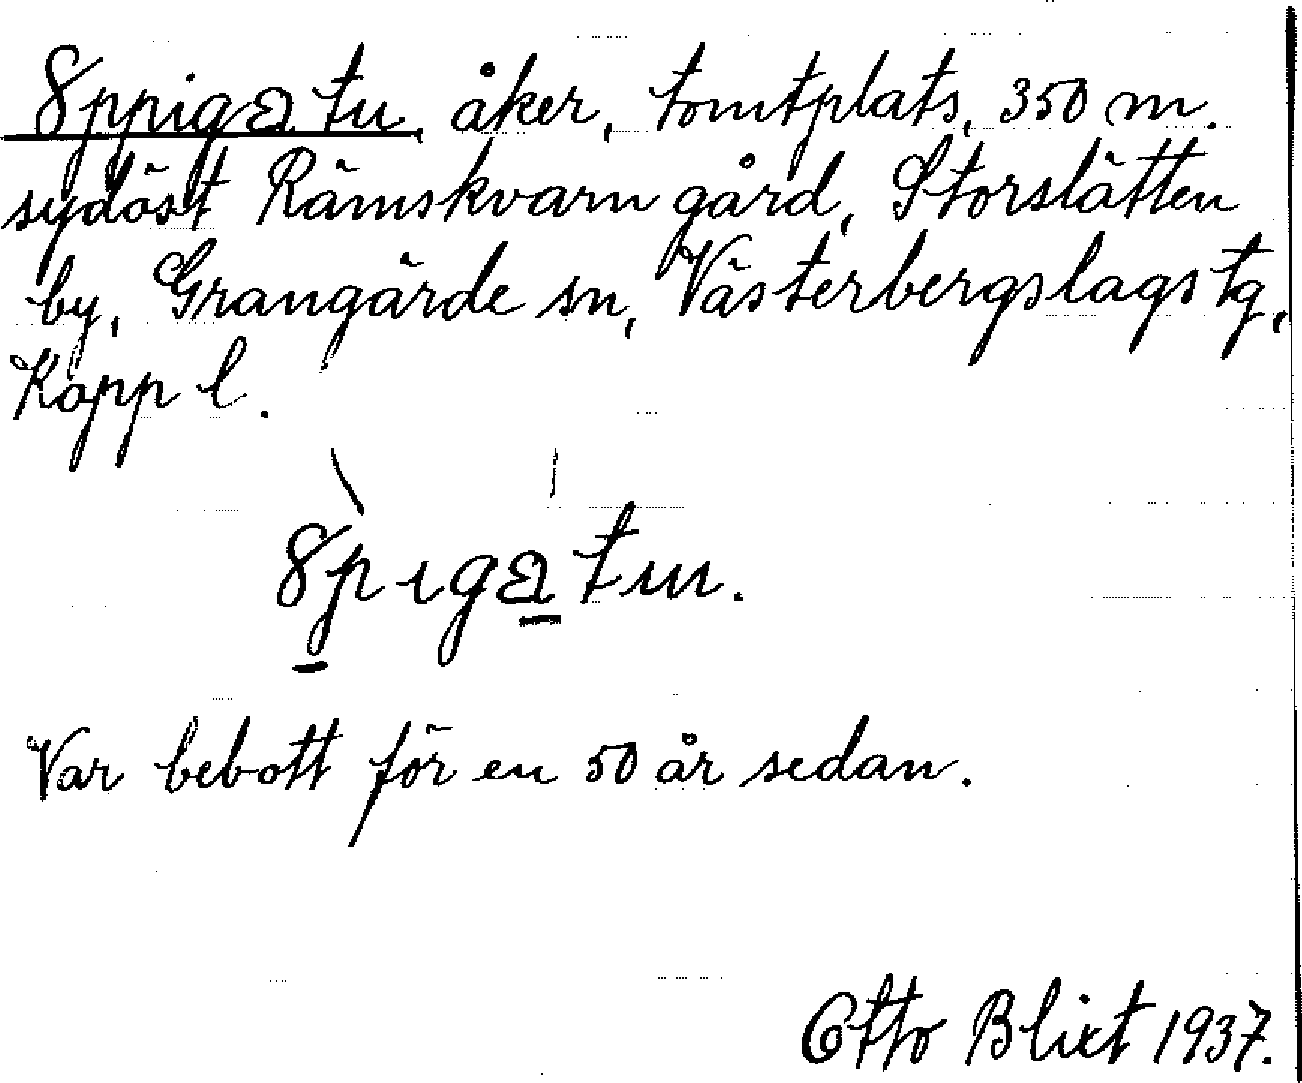 8ppigatu, åker, tomtplats, 350 m.
sydöst Rämskvarn gård, Storslätten
by, Grangärde sn, Västerbergslags tg,
Kopp l.
8pıgatun.
Var bebott för en 50 år sedan.
Otto Blixt 1937.